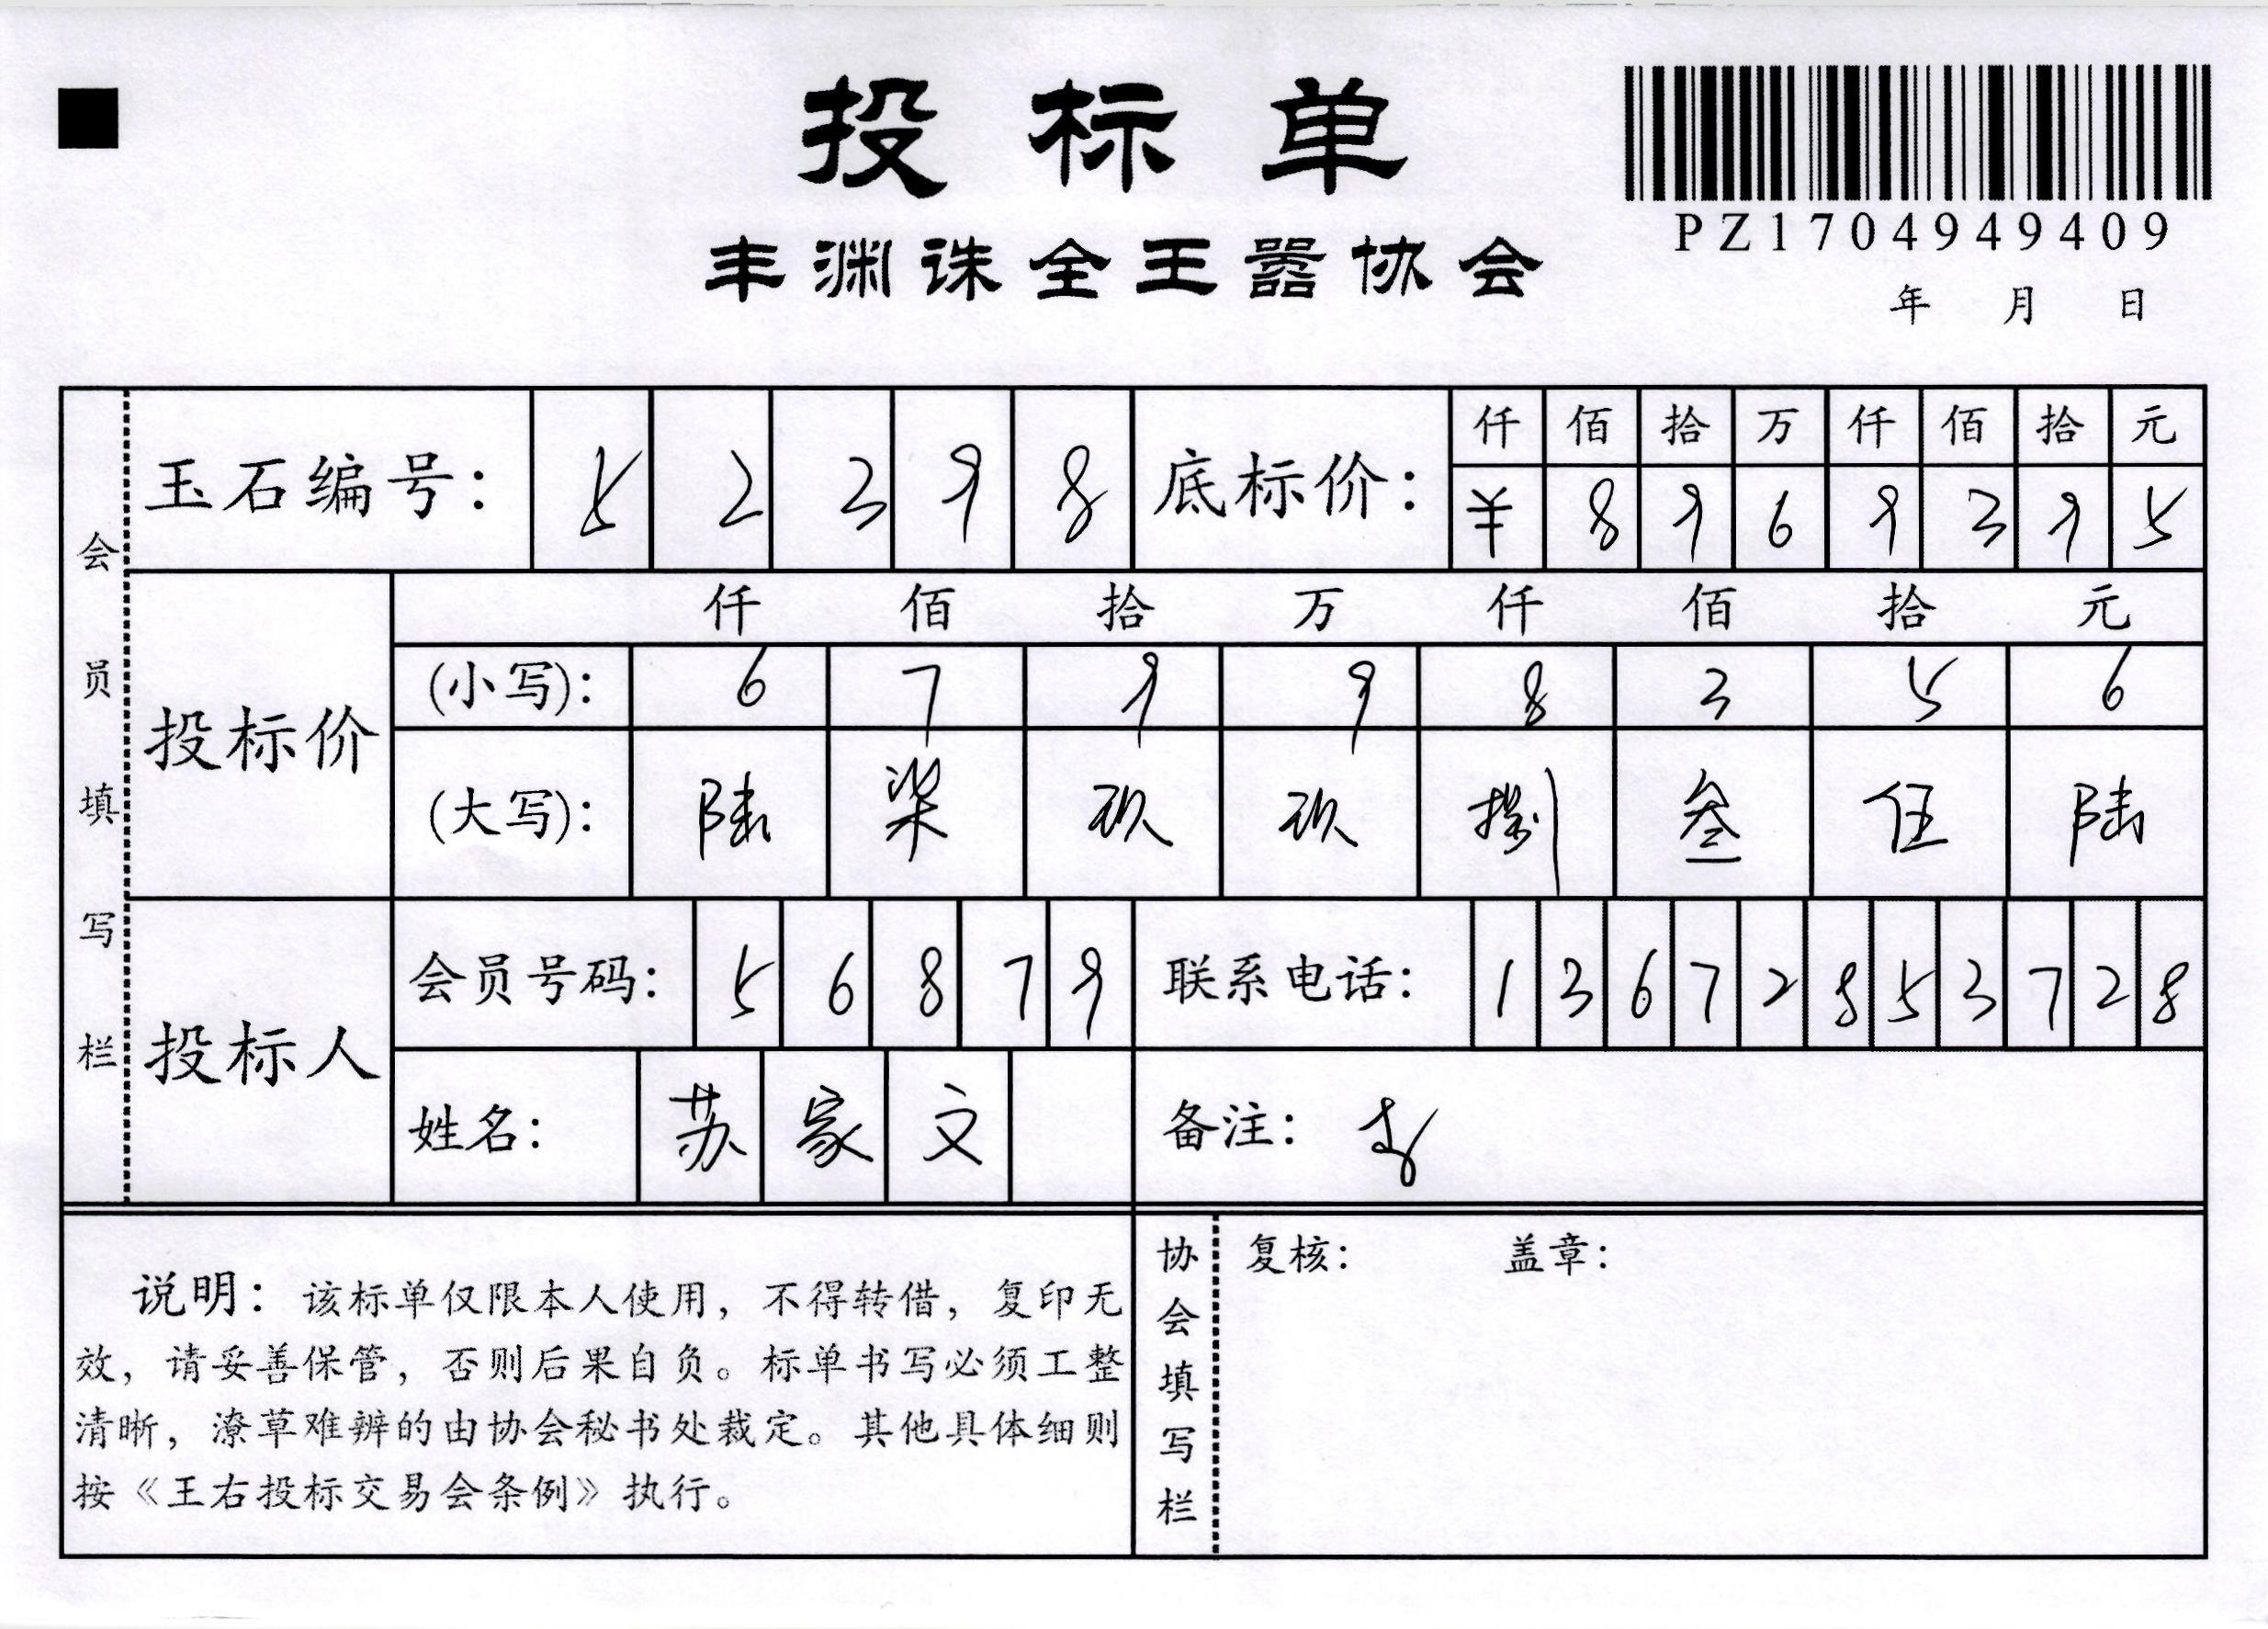 投标单
PZ1704949409
丰渊诛全王嚣协会
年 月 日
会员填写栏
玉石编号： 5 2 3 9 8 底标价： 仟 佰 拾 万 仟 佰 拾 元
¥ 8 9 6 9 3 9 5
投标价 仟 佰 拾 万 仟 佰 拾 元
(小写)： 6 7 9 9 8 3 5 6
(大写)： 陆 柒 玖 玖 捌 叁 伍 陆
投标人 会员号码： 5 6 8 7 9 联系电话： 1 3 6 7 2 8 5 3 7 2 8
姓名： 苏 家 文 备注：
协会填写栏 复核： 盖章：
说明：该标单仅限本人使用，不得转借，复印无
效，请妥善保管，否则后果自负。标单书写必须工整
清晰，潦草难辨的由协会秘书处裁定。其他具体细则
按《王右投标交易会条例》执行。